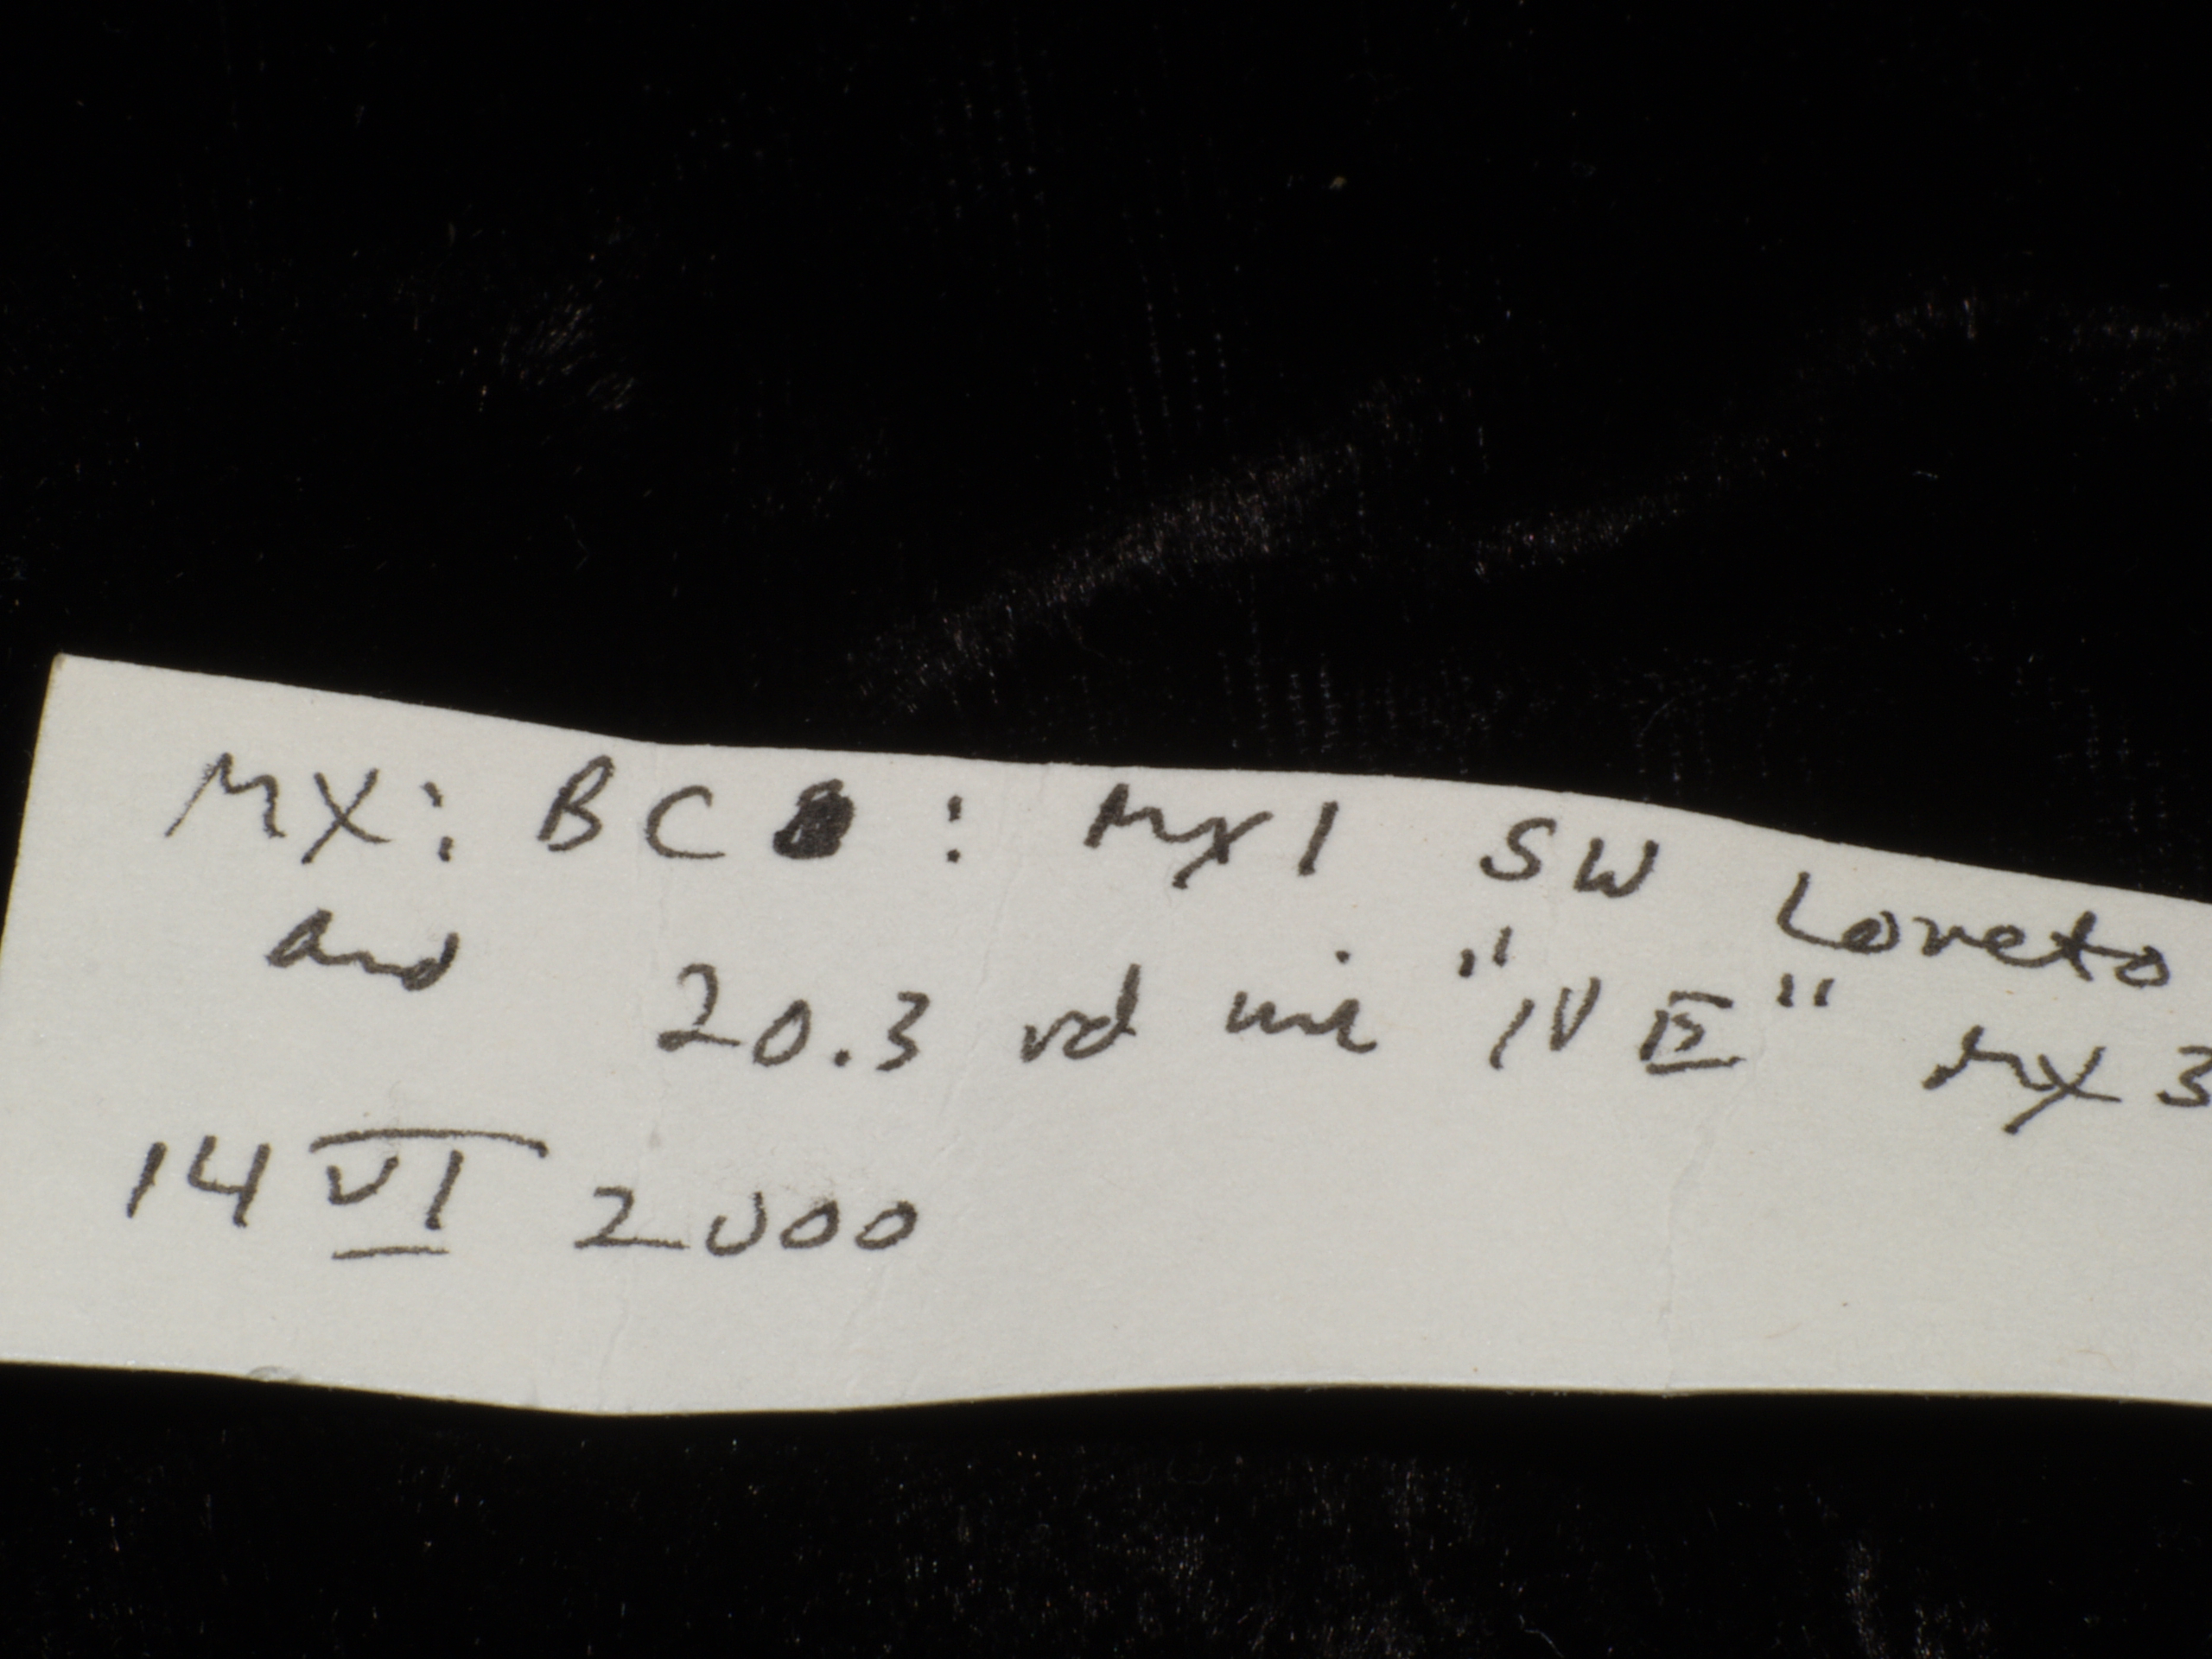 MX: BC : MX1 SW Loreto
and 20.3 rd mi "NE" MX 3
14 VI 2000